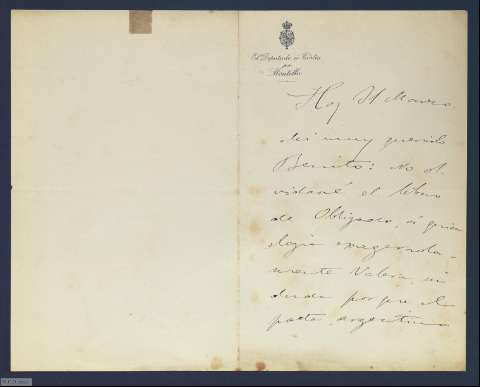 El Diputado a Cortes
por
Montilla
Hoy 11 Marzo
Mi muy querido
Benito: No ol
vidaré el libro
de Obligado, á quien
elogia exagerada-
mente Valera, sin
duda porque el
poeta argentino